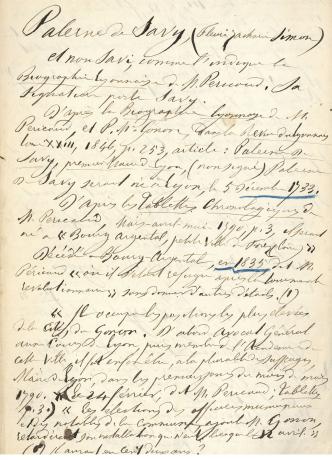 Palerne de Savy (fleuri zacharie Simon)
et non Savi comme l'indique la
Biographie lyonnaise de M. Pericaud. Sa
signature porte Savy.
D'après la Biographie lyonnaise de M.
Pericaud, et P. M. Gonon, dans la Revue du Lyonnais
tome XXIII, 1846, p. 253, article: Palerne de
Savy, premier Maire de Lyon, (non signé) Palerne
de Savy serait né à Lyon, le 5 Décembre 1733.
D'après les Tablettes Chronologiques de
M. Pericaud, Mars-avril mai 1790, p. 3, il serait
né à « Bourg argental, petite ville du Forez
Décédé à Bourg-Argental, en 1835 dit M.
Pericaud « où il s'était réfugié après la tourmente
révolutionnaire » sans donner d'autres détails. (1)
« Il occupa les positions les plus élevées
de la cité, dit Gonon. D'abord avocat général
aux Cours de Lyon, puis membre de l'Académie de
cette ville, il fut enfin élu, à la pluralité des suffrages,
Maire de Lyon, dans les premiers jours du mois de mars
1790. » Le 24 février, dit M. Pericaud, Tablettes
p. 3. « les élections des officiers municipaux
et des notables de la Commune, ajoute M. Gonon,